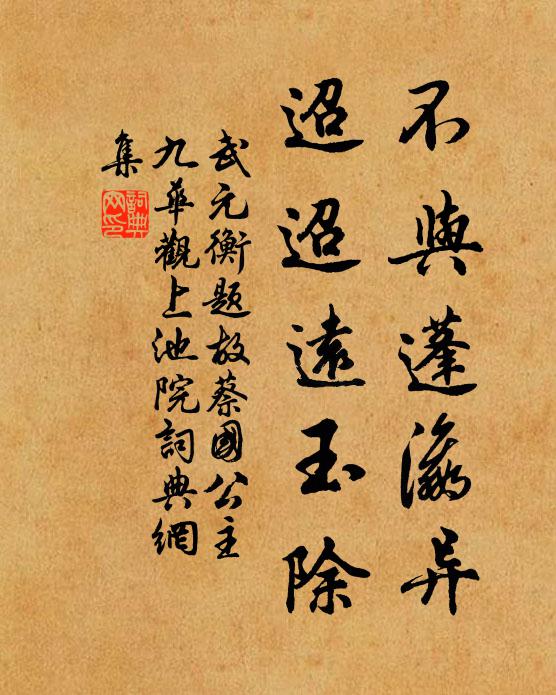 不與蓬瀛异
迢迢遠玉除
武元衡題故蔡國公主
九華觀上池院詞典網
集
詞典
网印